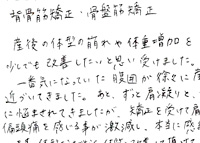 背骨筋矯正・骨盤筋矯正
産後の体型の崩れや体重増加を
少しでも改善したいと思い受けました。
一番気になっていた腹囲が徐々に産
近づいてきました。あと、ずっと肩凝りと、
に悩まされてきましたが、矯正を受けて肩
偏頭痛を感じる事が激減し、本当に感